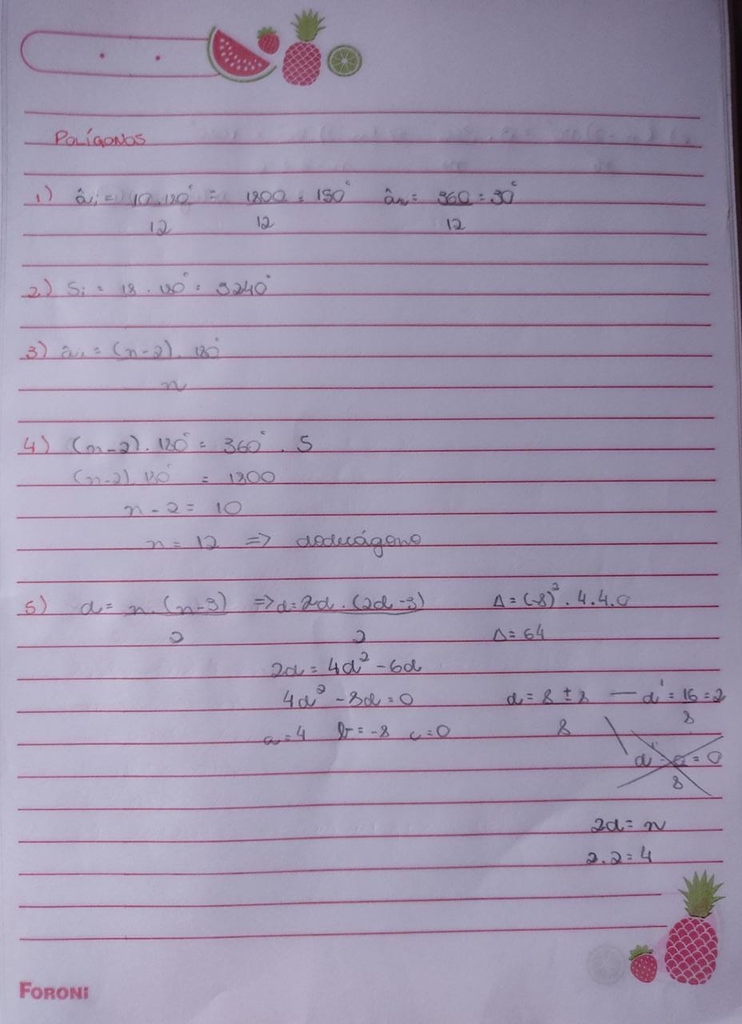 Polígonos
1) âi = 10.180° = 1800 = 150° âe = 360 = 30°
12 12 12
2) Si = 18 . 180° = 3240°
3) âi = (n-2) . 180°
n
4) (n-2) . 180° = 360° . 5
(n-2) 180° = 1800
n - 2 = 10
n = 12 => dodecágono
5) d = n . (n-3) => d = 2d . (2d-3) Δ = (-8)² . 4.4.0
2 2 Δ = 64
2d = 4d² - 6d
4d² - 8d = 0 d = 8 ± 8 — d' = 16 = 2
a = 4 b = -8 c = 0 8 8
d'' = 0 = 0
8
2d = n
2.2 = 4
FORONI